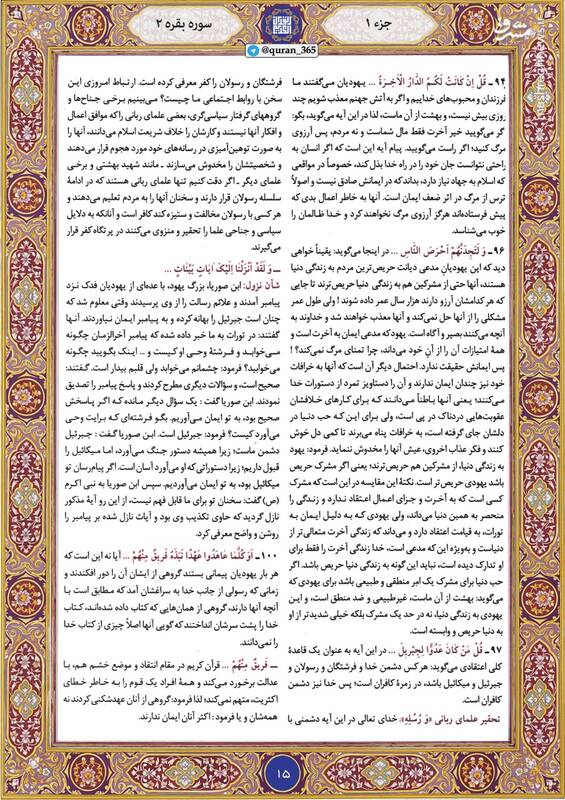 جزء ۱
سوره بقره ۲
@quran_365
مشرق
۹۴ - قُلْ اِنْ كَانَتْ لَكُمُ الدَّارُ الْاٰخِرَةُ ... یهودیان می‌گفتند ما
فرزندان و محبوب‌های خداییم و اگر به آتش جهنم معذب شویم چند
روزی بیش نیست، و بهشت از آن ماست، لذا در این آیه می‌گوید، بگو:
گر می‌گویید خیر آخرت فقط مال شماست و نه مردم، پس آرزوی
مرگ کنید؛ اگر راست می‌گویید. پیام آیه این است که اگر انسان به
راحتی نتوانست جان خود را در راه خدا بذل کند، خصوصاً در مواقعی
که اسلام به جهاد نیاز دارد، بداند که در ایمانش صادق نیست و اصولاً
ترس از مرگ در اثر ضعف ایمان است. آنها به خاطر اعمال بدی که
پیش فرستاده‌اند هرگز آرزوی مرگ نخواهند کرد و خدا ظالمان را
خوب می‌شناسد.
۹۶ - وَ لَتَجِدَنَّهُمْ اَحْرَصَ النَّاسِ ... در اینجا می‌گوید: یقیناً خواهی
دید که این یهودیانِ مدعی دیانت حریص‌ترین مردم به زندگی دنیا
هستند، آنها حتی از مشرکین هم به زندگی دنیا حریص‌ترند تا جایی
که هر کدامشان آرزو دارند هزار سال عمر داده شوند ! ولی طول عمر
مشکلی را از آنها حل نمی‌کند و آنها معذب خواهند شد و خداوند به
آنچه می‌کنند بصیر و آگاه است. یهود که مدعی ایمان به آخرت است و
همهٔ امتیازات آن را از آنِ خود می‌داند، چرا تمنای مرگ نمی‌کند؟ !
پس ایمانش حقیقت ندارد. احتمال دیگر آن است که آنها به خرافات
خود نیز چندان ایمان ندارند و آن را دستاویز تمرد از دستورات خدا
می‌کنند؛ یعنی آنها باطناً می‌دانند که برای کارهای خلافشان
عقوبت‌هایی دردناک در پی است، ولی برای این که حب دنیا در
دلشان جای گرفته است، به خرافات پناه می‌برند تا کمی دل خوش
کنند و فکر عذاب اخروی، عیش آنها را مخدوش ننماید. فرمود: یهود
به زندگی دنیا از مشرکین هم حریص‌ترند؛ یعنی اگر مشرک حریص
باشد یهودی حریص‌تر است. نکتهٔ این مقایسه در این است که مشرک
کسی است که به آخرت و جزای اعمال اعتقاد ندارد و زندگی را
منحصر به همین دنیا می‌داند، ولی یهودی که به دلیل ایمان به
تورات، به قیامت اعتقاد دارد و می‌داند که زندگی آخرت متعالی‌تر از
دنیاست و به‌ویژه این که مدعی است، خدا زندگی آخرت را فقط برای
او تدارک دیده است، نباید این گونه به زندگی دنیا حریص باشد. اگر
حب دنیا برای مشرک یک امر منطقی و طبیعی باشد برای یهودی که
می‌گوید: بهشت از آن ماست، غیرطبیعی و ضد منطق است، و این
یهودی به زندگی دنیا، نه در حد یک مشرک بلکه خیلی شدیدتر از او
به دنیا حریص و وابسته است.
۹۷ - قُلْ مَنْ كَانَ عَدُوًّا لِجِبْرِيلَ ... در این آیه به عنوان یک قاعدهٔ
کلی اعتقادی می‌گوید: هر کس دشمن خدا و فرشتگان و رسولان و
جبرئیل و میکائیل باشد، در زمرهٔ کافران است؛ پس خدا نیز دشمن
کافران است.
تحقیر علمای ربانی «وَ رُسُلِهِ»: خدای تعالی در این آیه دشمنی با
فرشتگان و رسولان را کفر معرفی کرده است. ارتباط امروزی این
سخن با روابط اجتماعی ما چیست؟ می‌بینیم برخی جناح‌ها و
گروههای گرفتار سیاسی‌گری، بعضی علمای ربانی را که موافق اعمال
و افکار آنها نیستند و کارشان را خلاف شریعت اسلام می‌دانند، آنها را
به صورت توهین‌آمیزی در رسانه‌های خود مورد هجوم قرار می‌دهند
و شخصیتشان را مخدوش می‌سازند ـ مانند شهید بهشتی و برخی
علمای دیگر ـ اگر دقت کنیم تنها علمای ربانی هستند که در ادامهٔ
سلسله رسولان قرار دارند و سخنان آنها را به مردم تعلیم می‌دهند و
هر کسی با رسولان مخالفت و ستیزه کند کافر است و آنانکه به دلایل
سیاسی و جناحی علما را تحقیر و منزوی می‌کنند در پرتگاه کفر قرار
می‌گیرند.
ـــ وَ لَقَدْ اَنْزَلْنَا اِلَيْكَ اٰيَاتٍ بَيِّنَاتٍ ...
شأن نزول: ابن صوریا، بزرگ یهود، با عده‌ای از یهودیان فدک نزد
پیامبر آمدند و علائم رسالت را از وی پرسیدند وقتی معلوم شد که
چنان است جبرئیل را بهانه کرده و به پیامبر ایمان نیاوردند. آنها
گفتند: در تورات به ما خبر داده شده که پیامبر آخرالزمان چگونه
می‌خوابد و فرشتهٔ وحی او کیست و ... اینک بگویید چگونه
می‌خوابید؟ فرمود: چشمانم می‌خوابد ولی قلبم بیدار است. گفتند:
صحیح است، و سؤالات دیگری مطرح کردند و پاسخ پیامبر را تصدیق
نمودند. ابن صوریا گفت : یک سؤال دیگر مانده که اگر پاسخش
صحیح بود، به تو ایمان می‌آوریم. بگو فرشته‌ای که برایت وحی
می‌آورد کیست؟ فرمود: جبرئیل است. ابن صوریا گفت : جبرئیل
دشمن ماست؛ زیرا همیشه دستور جنگ می‌آورد، اما میکائیل را
قبول داریم؛ زیرا دستوراتی که او می‌آورد آسان است. اگر پیام‌رسان تو
میکائیل بود، به تو ایمان می‌آوردیم. سپس ابن صوریا به نبی اکرم
(ص) گفت: سخنان تو برای ما قابل فهم نیست، از این رو آیهٔ مذکور
نازل گردید که حاوی تکذیب وی بود و آیات نازل شده بر پیامبر را
روشن و واضح معرفی کرد.
۱۰۰ - اَوَ كُلَّمَا عَاهَدُوا عَهْدًا نَبَذَهُ فَرِيقٌ مِنْهُمْ ... آیا نه این است که
هر بار یهودیان پیمانی بستند گروهی از ایشان آن را دور افکندند و
زمانی که رسولی از جانب خدا به سراغشان آمد که مطابق است با
آنچه آنها دارند، گروهی از همان‌هایی که کتاب داده شده‌اند، کتاب
خدا را پشت سرشان انداختند که گویی آنها اصلاً چیزی از کتاب خدا
را نمی‌دانند.
ـــ فَرِيقٌ مِنْهُمْ ... قرآن کریم در مقام انتقاد و موضع خشم هم، با
عدالت برخورد می‌کند و همهٔ افراد یک قوم را به خاطر خطای
اکثریت، متهم نمی‌کند؛ لذا فرمود: گروهی از آنان عهدشکنی کردند نه
همه‌شان و یا فرمود : اکثر آنان ایمان ندارند.
۱۵